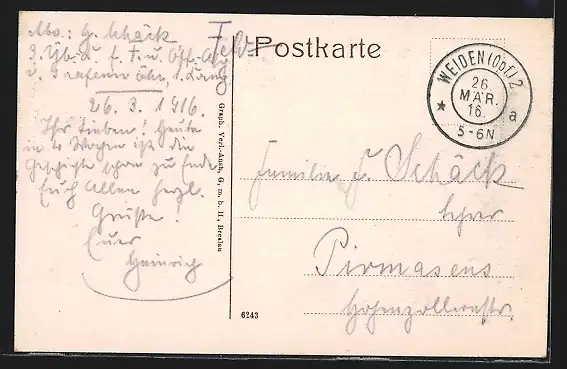 Abs.: H. Schäck
3. Üb. L. f. F. u. Off. Asp.
Grafenwöhr,
26. 3. 1916.
Ihr Lieben! Heute
in 4 Wochen ist die
Geschichte schon zu Ende
Euch Allen herzl.
Grüße!
Euer
Heinrich
Graph. Verl.-Anst., G. m. b. H., Breslau
Postkarte
WEIDEN (Obf.) 2
26.
MÄR.
16.
5-6N
a
Familie F. Schäck
Lehrer
Pirmasens
Hohenzollernstr.
6243